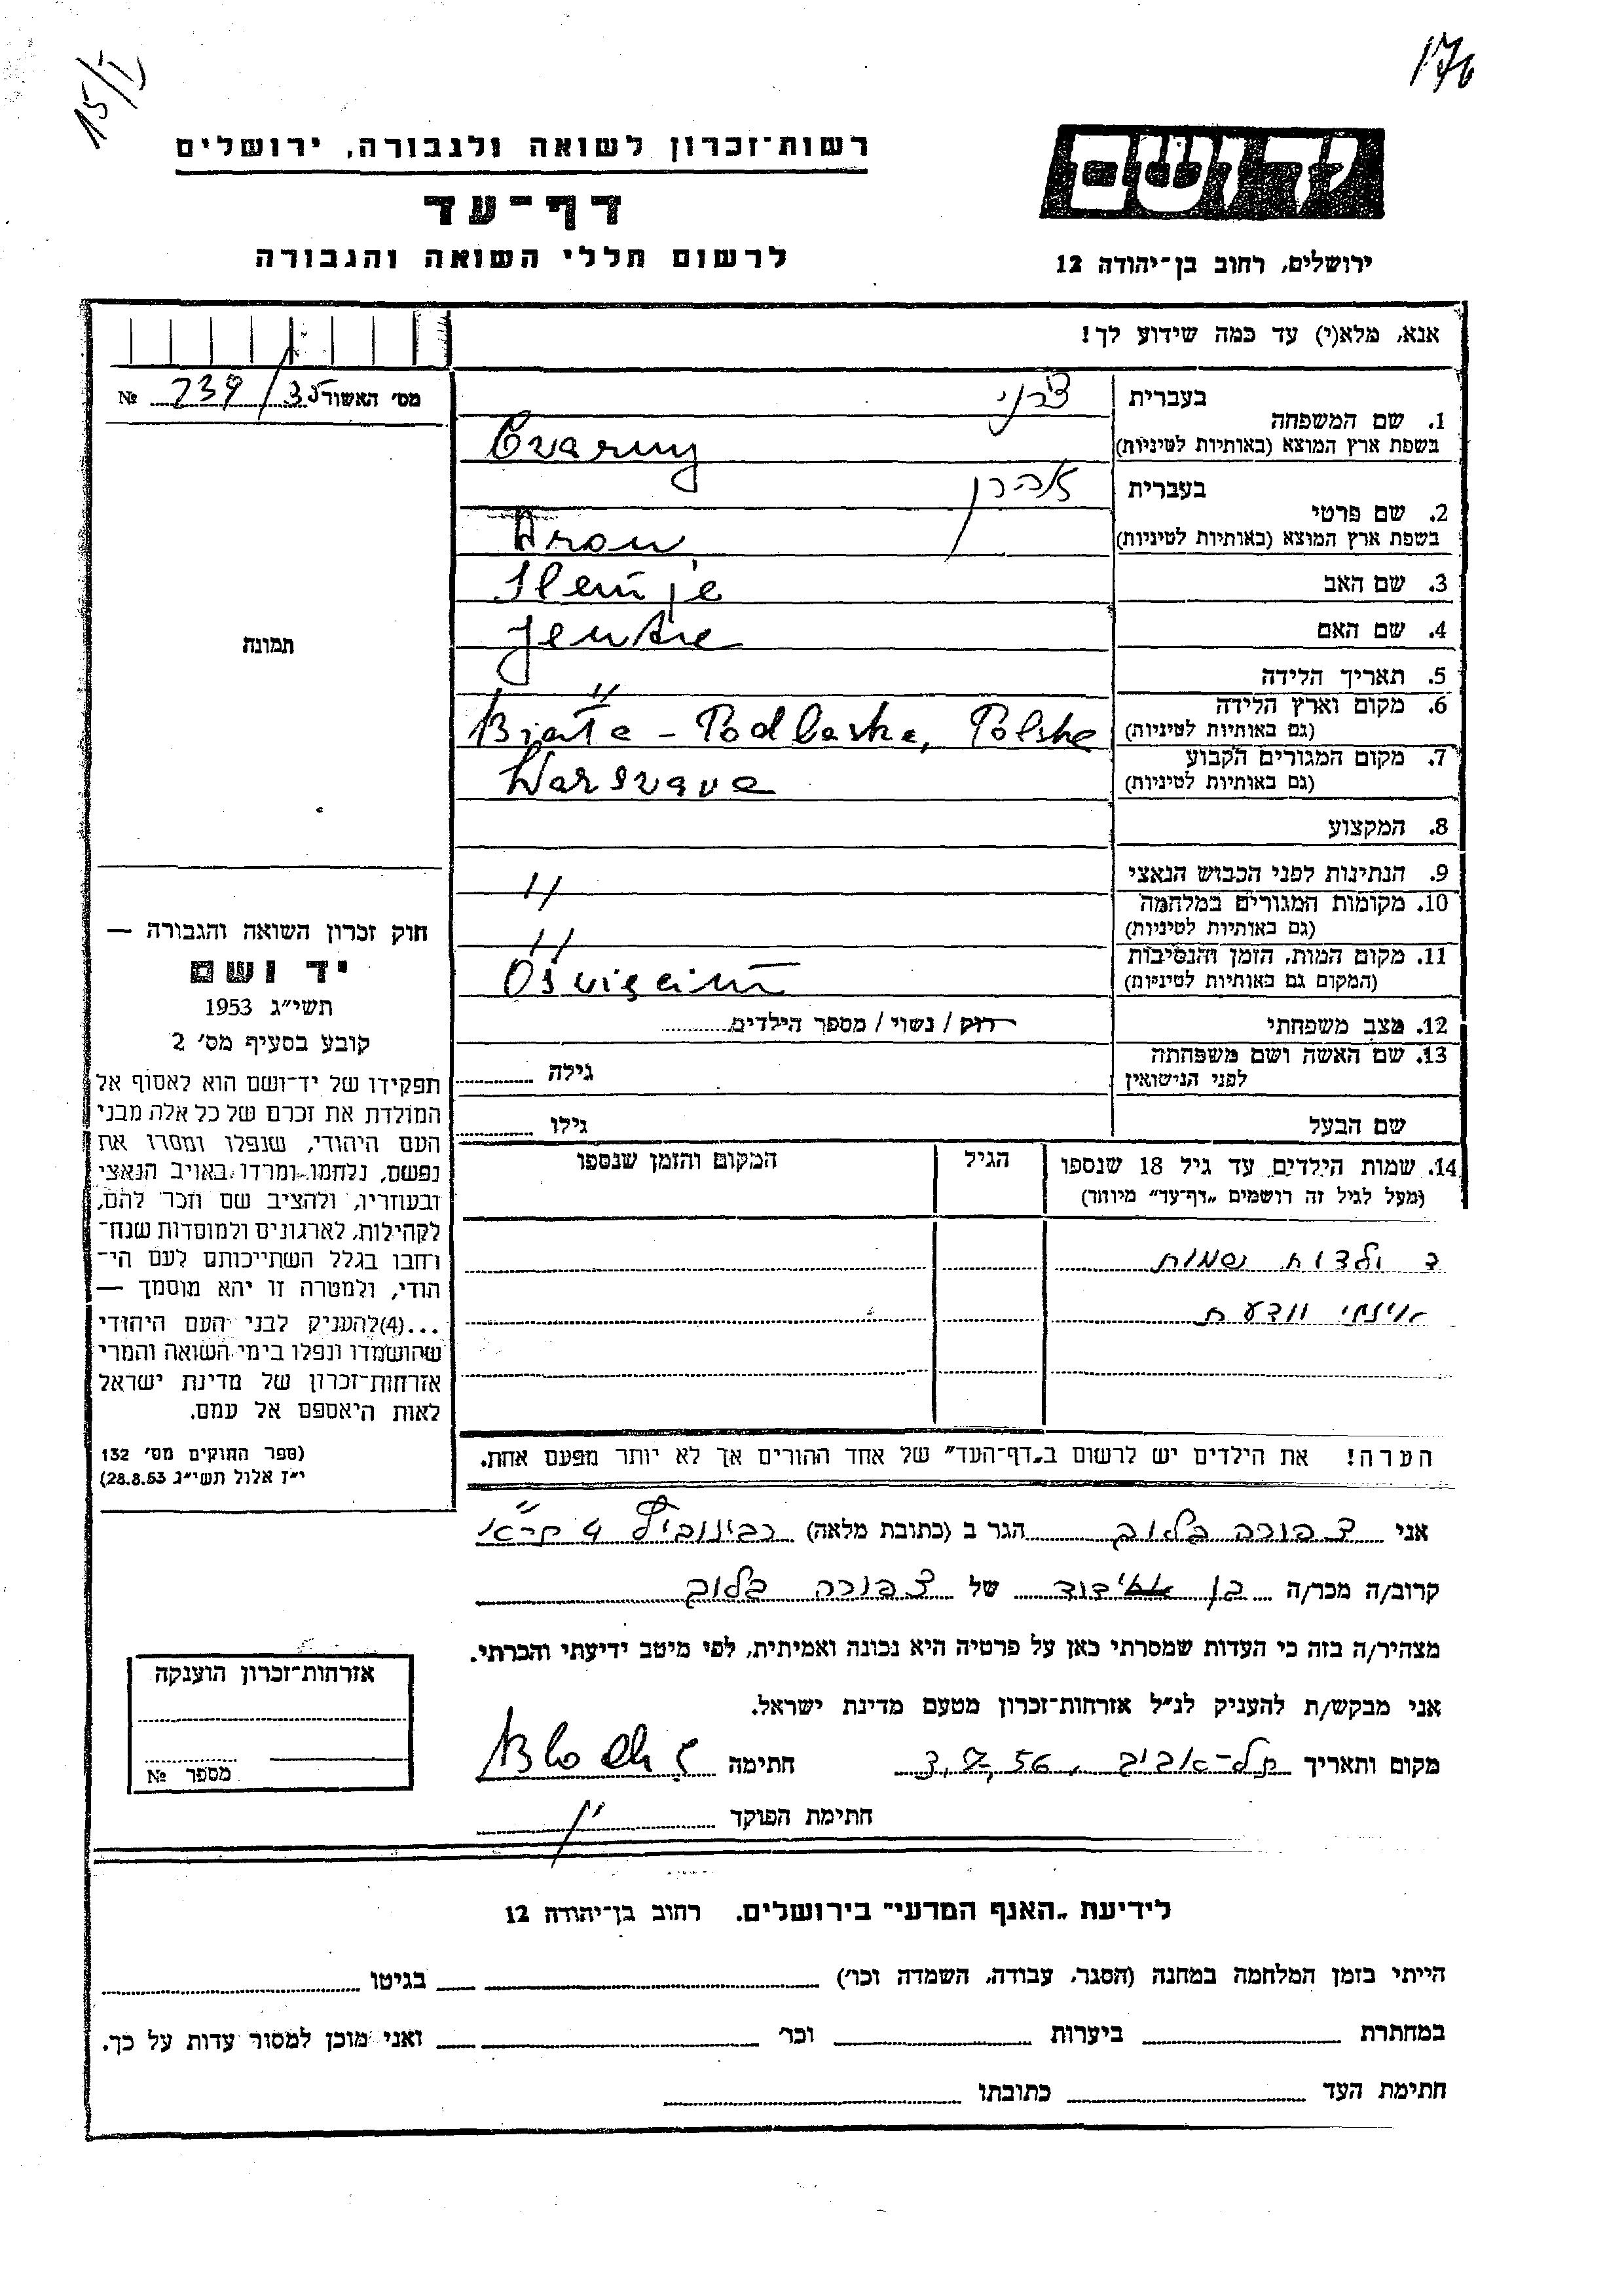 15/I
176
יד ושם
רשות־זכרון לשואה ולגבורה, ירושלים
דף־עד
לרשום חללי השואה והגבורה
ירושלים, רחוב בן־יהודה 12
אנא, מלא(י) עד כמה שידוע לך!
מס׳ האשור 239/35 №
תמונה
1. שם המשפחה
בעברית צ׳רני
בשפת ארץ המוצא (באותיות לטיניות) Czarny
2. שם פרטי
בעברית אהרן
בשפת ארץ המוצא (באותיות לטיניות) Aron
3. שם האב
4. שם האם
5. תאריך הלידה
6. מקום וארץ הלידה (גם באותיות לטיניות) Biała - Podlaska, Polska
7. מקום המגורים הקבוע (גם באותיות לטיניות) Warszawa
8. המקצוע
9. הנתינות לפני הכבוש הנאצי 11
10. מקומות המגורים במלחמה (גם באותיות לטיניות) 11
11. מקום המות, הזמן והנסיבות (המקום גם באותיות לטיניות) Oświęcim
12. מצב משפחתי רוק / נשוי / מספר הילדים
13. שם האשה ושם משפחתה לפני הנישואין גילה
שם הבעל גילו
14. שמות הילדים עד גיל 18 שנספו
(מעל לגיל זה רושמים „דף־עד״ מיוחד)
הגיל
המקום והזמן שנספו
2 ילדות שמות
אינני יודעת
הערה! את הילדים יש לרשום ב„דף־העד״ של אחד ההורים אך לא יותר מפעם אחת.
חוק זכרון השואה והגבורה —
יד ושם
תשי״ג 1953
קובע בסעיף מס׳ 2
תפקידו של יד־ושם הוא לאסוף אל
המולדת את זכרם של כל אלה מבני
העם היהודי, שנפלו ומסרו את
נפשם, נלחמו ומרדו באויב הנאצי
ובעוזריו, ולהציב שם וזכר להם,
לקהילות, לארגונים ולמוסדות שנח־
רחבו בגלל השתייכותם לעם הי־
הודי, ולמטרה זו יהא מוסמך —
...(4)להעניק לבני העם היהודי
שהושמדו ונפלו בימי השואה והמרי
אזרחות־זכרון של מדינת ישראל
לאות היאספם אל עמם.
(ספר החוקים מס׳ 132
י״ז אלול תשי״ג 28.8.53)
אני צפורה בלוך הגר ב (כתובת מלאה) 4 ת״א
קרוב/ה מכר/ה בן דוד של צפורה בלוך
מצהיר/ה בזה כי העדות שמסרתי כאן על פרטיה היא נכונה ואמיתית, לפי מיטב ידיעתי והכרתי.
אני מבקש/ת להעניק לנ״ל אזרחות־זכרון מטעם מדינת ישראל.
מקום ותאריך תל־אביב, 56 חתימה
חתימת הפוקד
אזרחות־זכרון הוענקה
מספר №
לידיעת „האגף המדעי״ בירושלים. רחוב בן־יהודה 12
הייתי בזמן המלחמה במחנה (הסגר, עבודה, השמדה וכו׳) בגיטו
במחתרת ביערות וכו׳ ואני מוכן למסור עדות על כך.
חתימת העד כתובתו